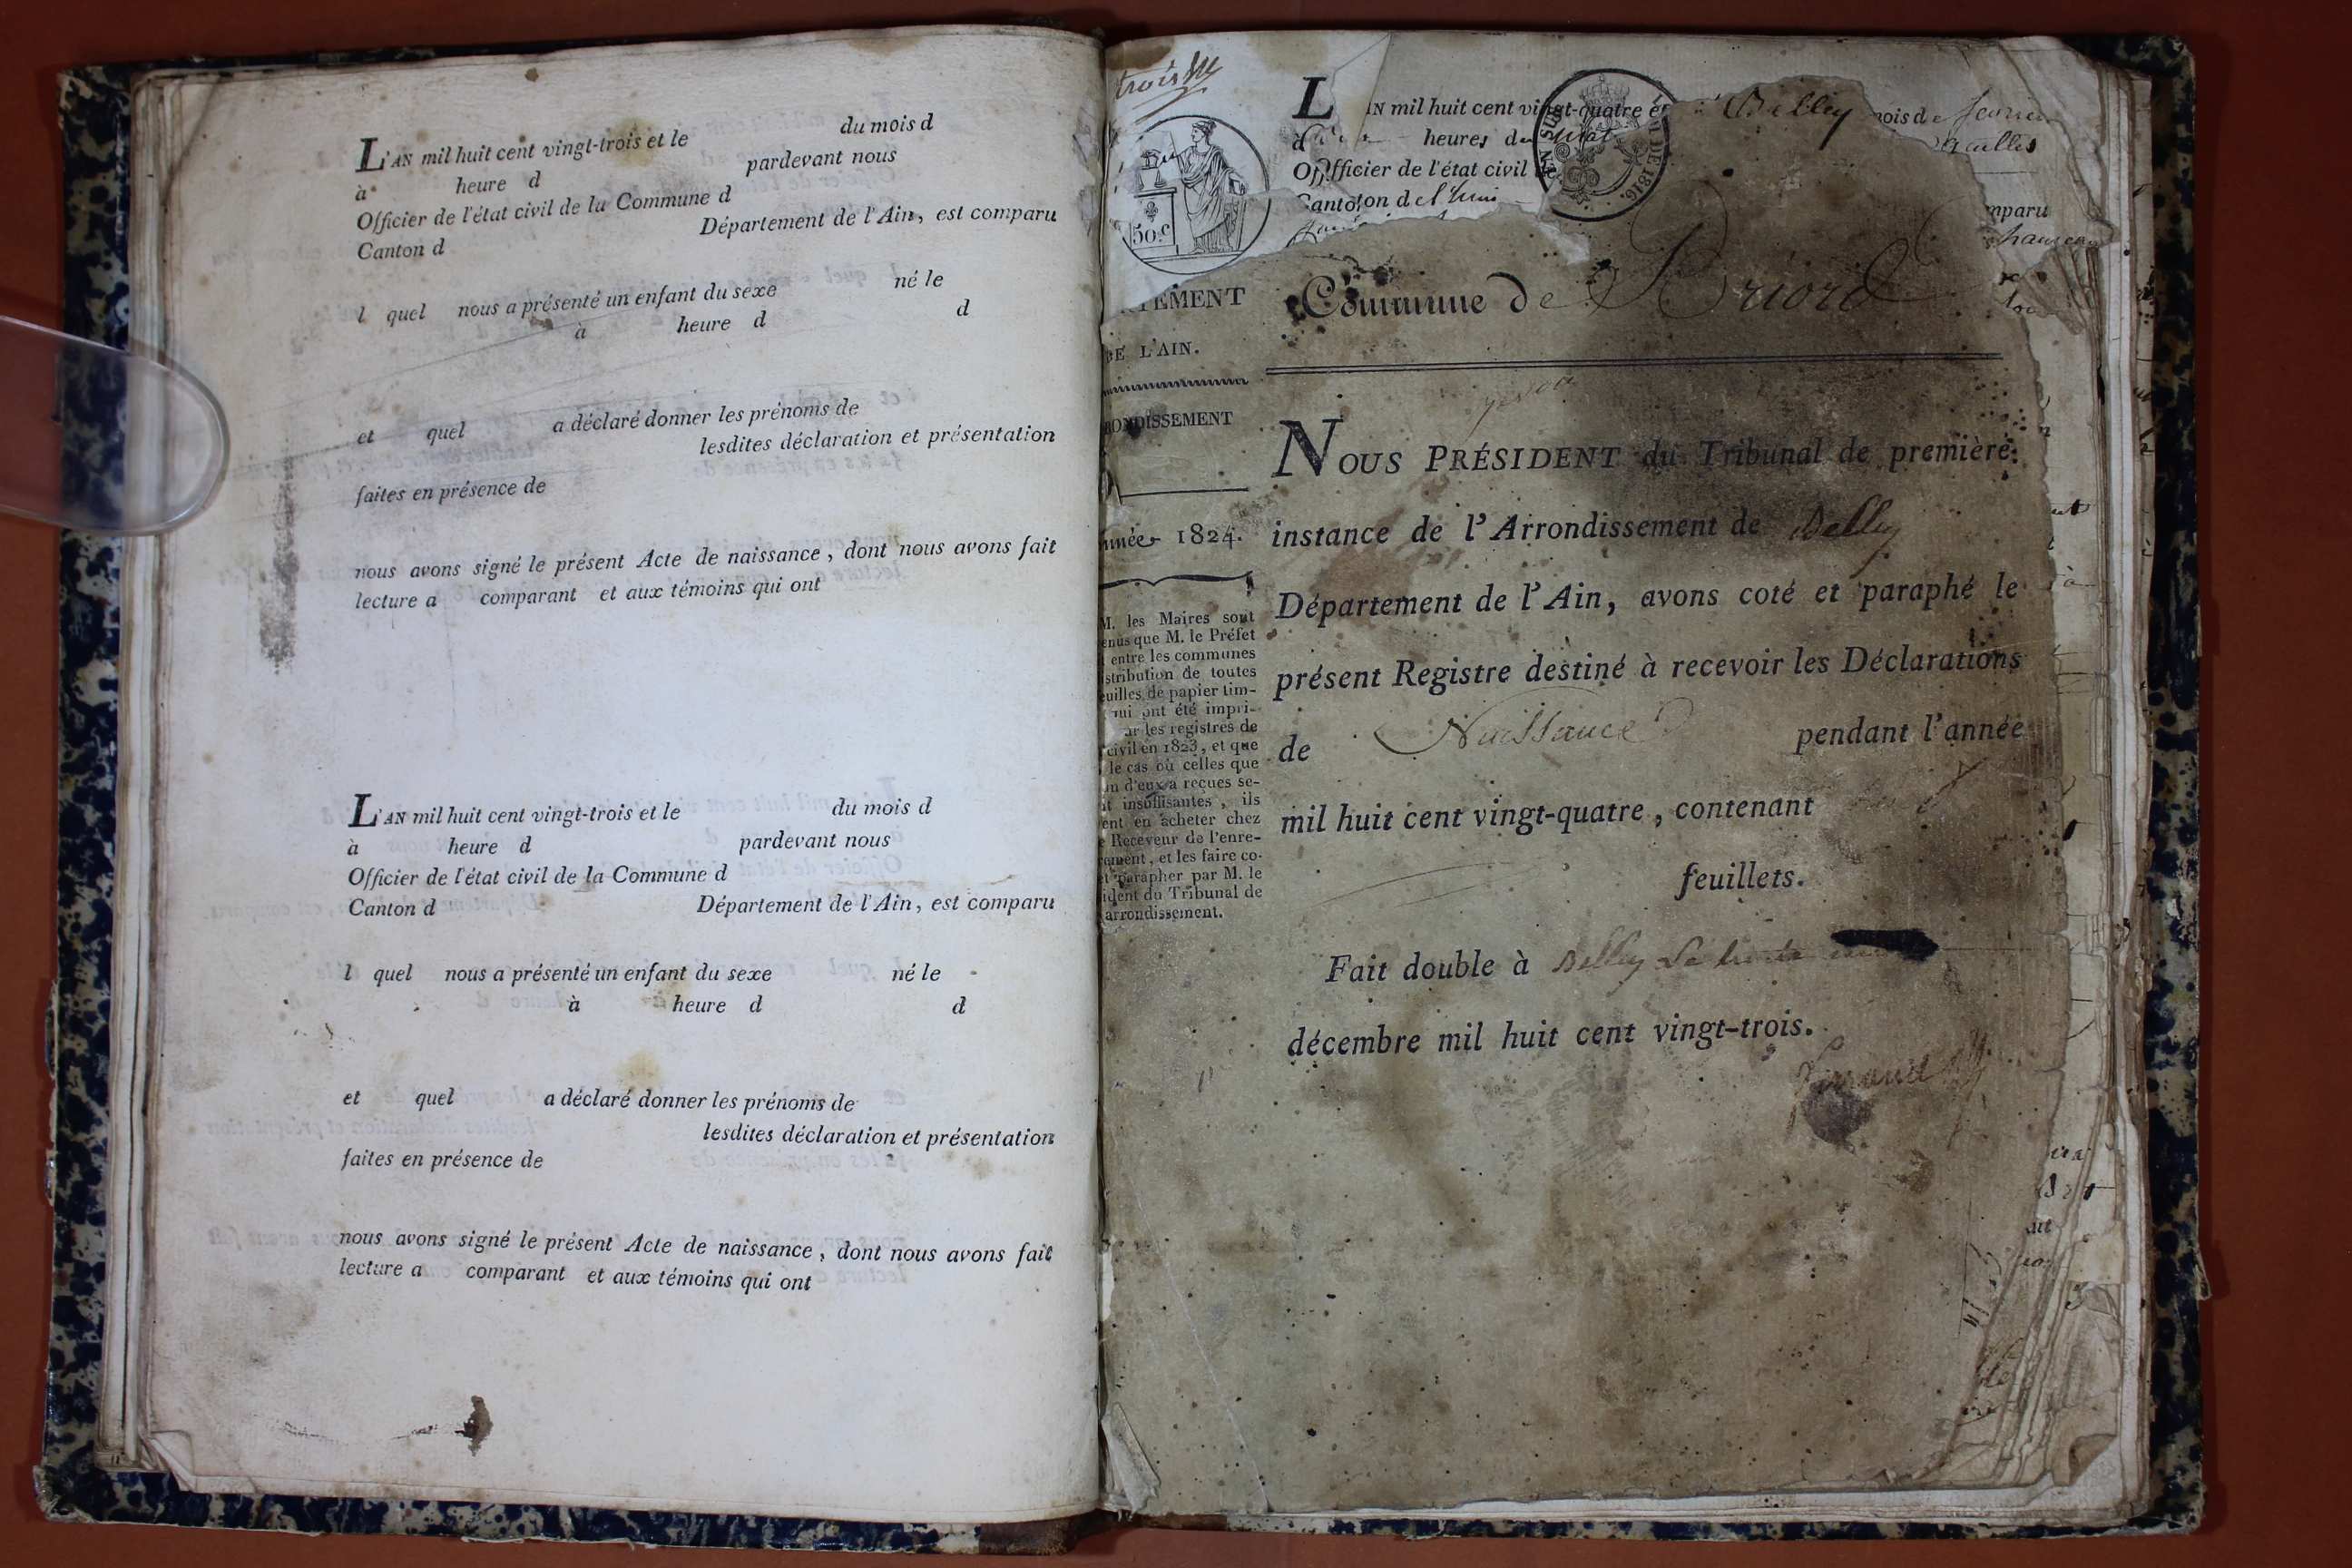 L'AN mil huit cent vingt-trois et le du mois d
à heure d pardevant nous
Officier de l'état civil de la Commune d
Canton d Département de l'Ain, est comparu
l quel nous a présenté un enfant du sexe né le
à heure d d
et quel a déclaré donner les prénoms de
lesdites déclaration et présentation
faites en présence de
nous avons signé le présent Acte de naissance, dont nous avons fait
lecture a comparant et aux témoins qui ont
L'AN mil huit cent vingt-trois et le du mois d
à heure d pardevant nous
Officier de l'état civil de la Commune d
Canton d Département de l'Ain, est comparu
l quel nous a présenté un enfant du sexe né le
à heure d d
et quel a déclaré donner les prénoms de
lesdites déclaration et présentation
faites en présence de
nous avons signé le présent Acte de naissance, dont nous avons fait
lecture a comparant et aux témoins qui ont
L AN mil huit cent vingt-quatre et
heures du
Officier de l'état civil
50.c
DE 1816.
Belley
mois de
mparu
TEMENT
DE L'AIN.
ONDISSEMENT
nnée 1824.
M. les Maires sont
enus que M. le Préfet
entre les communes
stribution de toutes
euilles de papier tim-
ui ont été impri-
ur les registres de
civil en 1823, et que
le cas où celles que
un d'eux a reçues se-
t insuffisantes, ils
ent en acheter chez
e Receveur de l'enre-
rement, et les faire co-
et parapher par M. le
ident du Tribunal de
arrondissement.
Commune de Briord
NOUS PRÉSIDENT du Tribunal de première
instance de l'Arrondissement de Belley
Département de l'Ain, avons coté et paraphé le
présent Registre destiné à recevoir les Déclarations
de Naissance pendant l'année
mil huit cent vingt-quatre, contenant
feuillets.
Fait double à Belley Le trente
décembre mil huit cent vingt-trois.